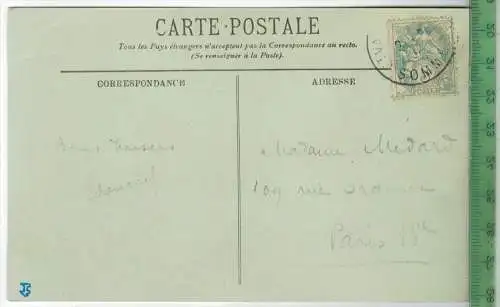 CARTE-POSTALE
Tous les Pays étrangers n'acceptent pas la Correspondance au recto.
(Se renseigner à la Poste).
CORRESPONDANCE
ADRESSE
SOMME
Bons baisers
Madame Médard
109 rue
Paris